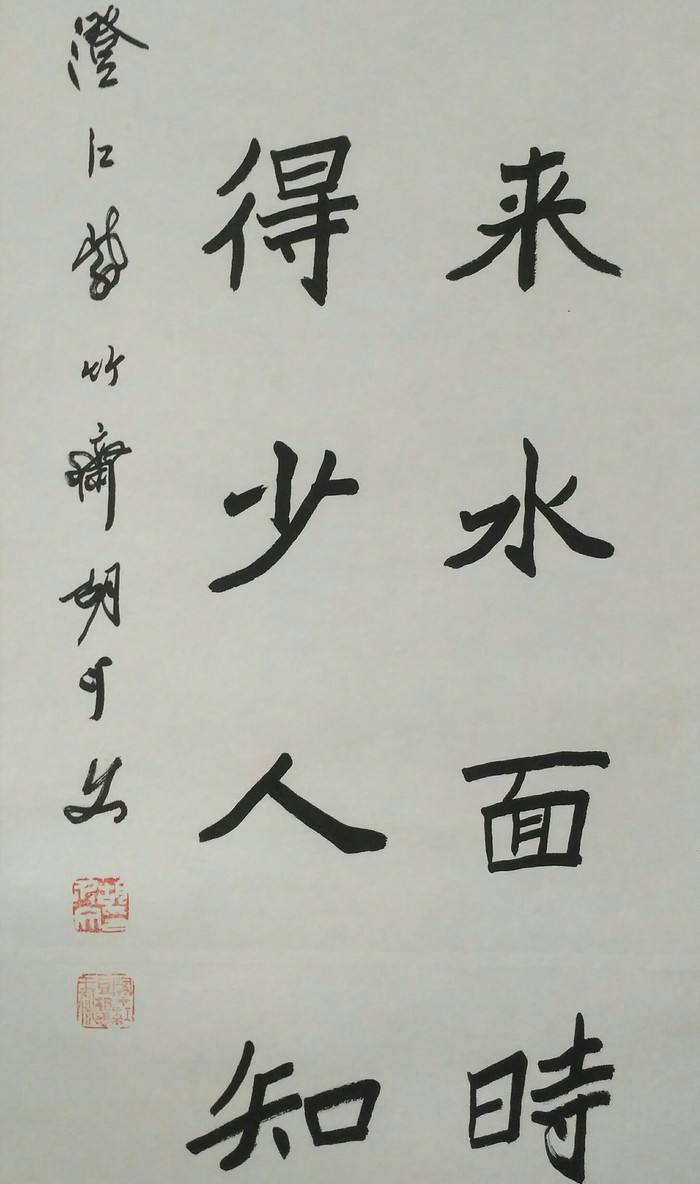 来水面時
得少人知
澄江紫竹齋胡